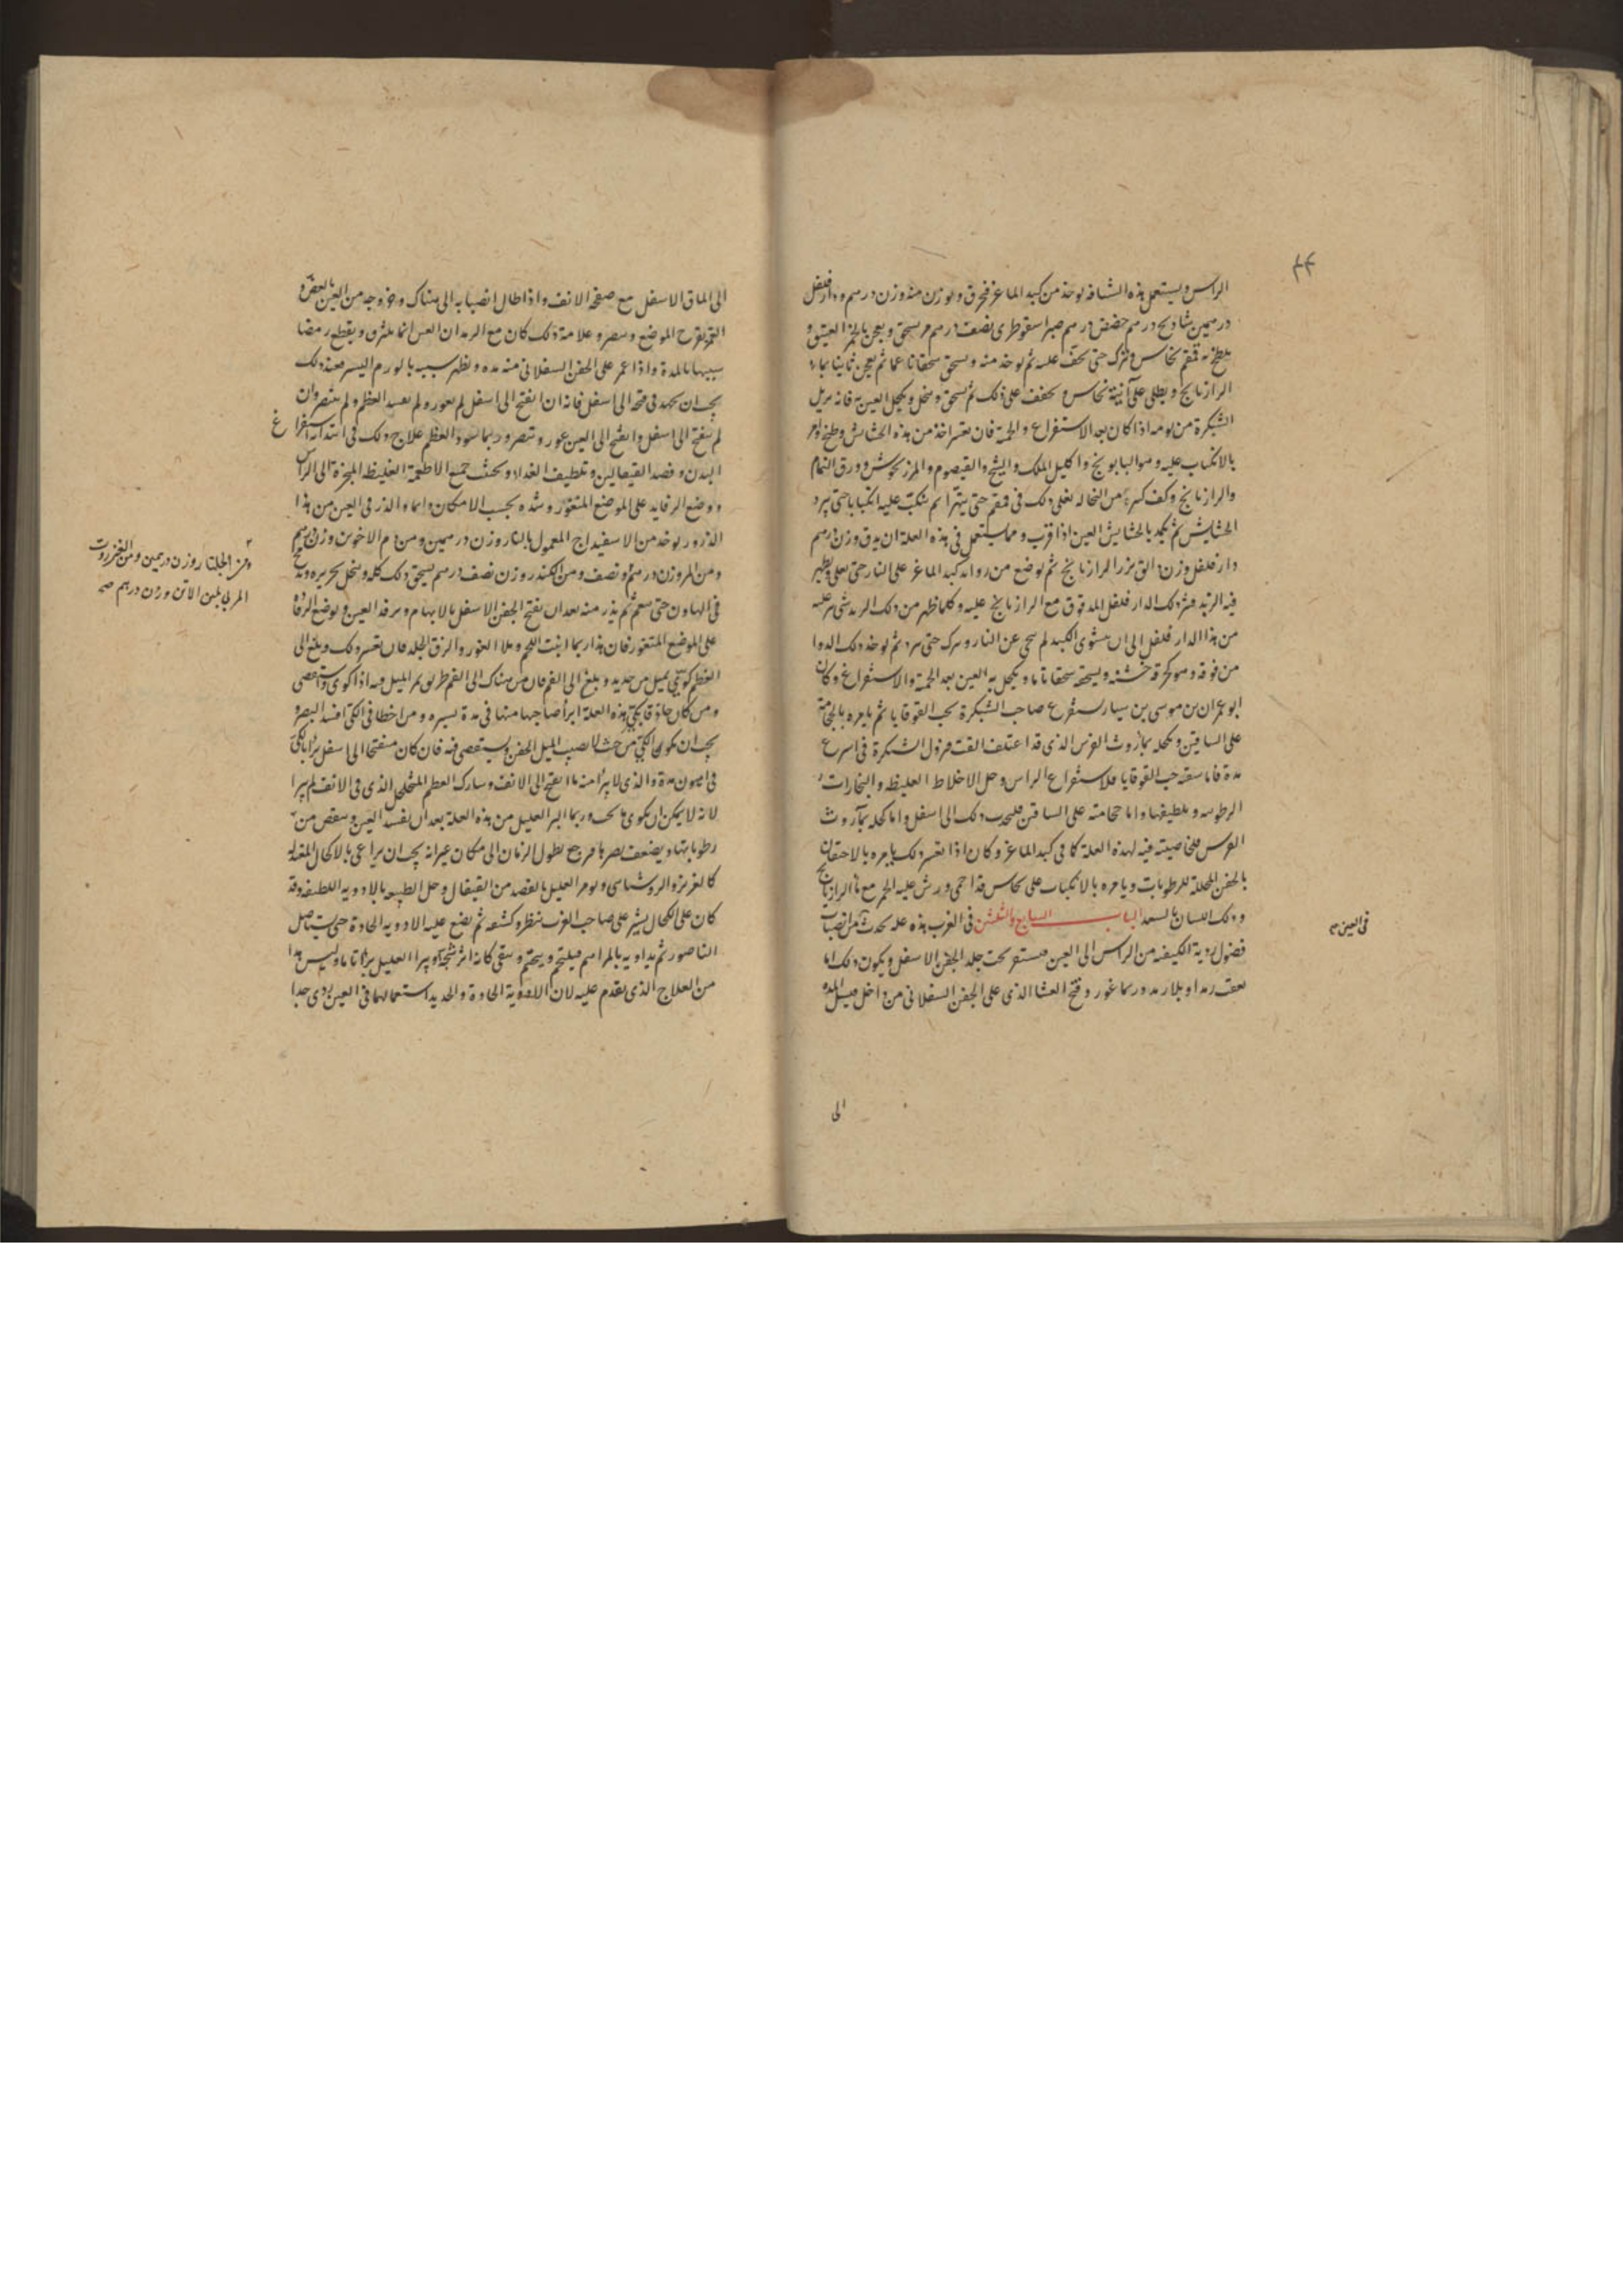 ٤٤
الراس ويستعمل هذه الشيافه يوخذ من كبد الماعز فيحرق ويوزن منه وزن درهم ودار فلفل
درهمين شاذنج درهم حضض درهم صبر اسقوطرى نصف درهم يسحق ويعجن بالخمر العتيق و
يلطخ به قمقم نحاس ويترك حتى يجف عليه ثم يوخذ منه ويسحق سحقا ناعما ثم يعجن ثانيا بماء
الرازيانج ويطلى على آنية نحاس ويجفف على ذلك ثم يسحق وينخل ويكحل العين به فانه يزيل
الشبكرة من يومه اذا كان بعد الاستفراغ والحمية فان تعسر اخذ من هذه الحشايش وطبخ وامر
بالانكباب عليه وهو البابونج واكليل الملك والشيح والقيصوم والمرزنجوش وورق النمام
والرازيانج وكف كبيرة من النخاله يغلى ذلك فى قمقم حتى يتهرا ثم ينكب عليه انكبابا حتى يبرد
الحشايش ثم يكمد بالحشايش العين اذا قرب ومما يستعمل فى هذه العلة ان يدق وزن درهم
دار فلفل وزن دانق بزر الرازيانج ثم يوضع من زوايد كبد الماعز على النار حتى يغلى ويظهر
فيه الزبد فينثر ذلك الدار فلفل المدقوق مع الرازيانج عليه وكلما ظهر من ذلك الزبد شى نثر عليه
من هذا الدار فلفل الى ان يستوى الكبد ثم ينحى عن النار ويترك حتى يبرد ثم يوخذ ذلك الدوا
من فوقه وهو كخرقه خشنه ويسحقه سحقا تاما ويكحل به العين بعد الحمية والاستفراغ وكان
ابو عمران بن موسى بن سيار يستفرغ صاحب الشبكرة بحب القوقايا ثم يامره بالحجامة
على الساقين ويكحله بماء روث الفرس الذى قد اعتلف القت فيزول الشبكرة فى اسرع
مدة فاما سقيه حب القوقايا فلاستفراغ الراس وحل الاخلاط الغليظه والبخارات
الرطوبيه وتلطيفها واما حجامته على الساقين فليجذب ذلك الى اسفل واما كحله بماء روث
الفرس فلخاصيته فيه لهذه العلة كما فى كبد الماعز وكان اذا تعسر ذلك يامره بالاحتقان
بالحقن المحللة للرطوبات ويامره بالانكباب على نحاس قد احمى ورش عليه الخمر مع ماء الرازيانج
وذلك اللسان بالسعد الباب السابع والثلثين فى الغرب هذه عله تحدث من انصباب
فضول ردية الكيفيه من الراس الى العين فيستقر تحت جلد الجفن الاسفل ويكون ذلك اما
بعقب رمد او بلا رمد وربما غور وفتح الغشا الذى على الجفن السفلانى من داخل فيسيل المده
فى العين صح
الى
الى الماق الاسفل مع صفحة الانف واذا طال انصبابه الى هناك وخروجه من العين بالعصر و
الغمز تقرح الموضع وتنصر وعلامة ذلك كان مع الرمد ان العين انما يلتزق ويقطع رمضا
شبيها بالمدة واذا غمر على الجفن السفلانى منه مده ويظهر سببه بالورم اليسير فعند ذلك
يجب ان يجهد فى فتحه الى اسفل فانه ان انفتح الى اسفل لم يغور ولم يفسد العظم ولم يتنصر وان
لم ينفتح الى اسفل وانفتح الى العين غور وتنصر وربما سود العظم علاج ذلك فى ابتدائه استفراغ
البدن وفصد القيفالين وتلطيف الغذاء وتجنب جميع الاطعمة الغليظة المبخرة الى الراس
ووضع الرفايد على الموضع المتغور وشده بحسب الامكان دايما والذر فى العين من هذا
الذرور يوخذ من الاسفيداج المعمول بالنار وزن درهمين ومن دم الاخوين وزن درهم
ومن المر وزن درهم ونصف ومن الكندر وزن نصف درهم يسحق ذلك كله وينخل بحريره ويدبغ
فى الهاون حتى ينعم ثم يذر منه بعد ان يفتح الجفن الاسفل بالابهام ويرفد العين ويوضع الرفاد
على الموضع المتغور فان هذا ربما انبت اللحم وملا الغور والزق الجلد فان تعسر ذلك وبلغ الى
العظم كوى بميل من حديد وبلغ الى الفم فان من هناك الى الفم طريق يمر الميل فيه اذا كوى واستقصى
ومن كان حاذقا بكى هذه العلة ابرأ صاحبها منها فى مدة يسيره ومن اخطا فى الكى افسد البصر و
يجب ان يكون الكى من حيث لا يصيب الميل الجفن ويستقصى فيه فان كان منفتحا الى اسفل برأ بالكى
فى اهون مدة والذى لا يبرأ منه ما انفتح الى الانف وشارك العظم المتخلخل الذى فى الانف لم يبرا
لانه لا يمكن ان يكوى ما تحت وربما ابرا العليل من هذه العلة بعد ان يفسد العين وينقص من
رطوباتها ويضعف بصرها فيرجع بطول الزمان الى مكان غير انه يجب ان يراعى بالاكحال المقويه
كالغريز والروشنايى ويومر العليل بالفصد من القيفال وحل الطبيعه بالادويه اللطيفه وقد
كان على الكحال يشير على صاحب الغرب ببطره وكشفه ثم يضع عليه الادويه الحادة حتى يستاصل
الناصور ثم يداويه بالمراهم فيلتحم ويختم ويبقى كانه اثر شجه ويبرا العليل برأ تاما وليس هذا
من العلاج الذى يقدم عليه لان الادوية الحادة والحديد استعمالهما فى العين ردى جدا
ومن الجلنار وزن درهمين ومن العنزروت
المربى بلبن الاتن وزن درهم صح